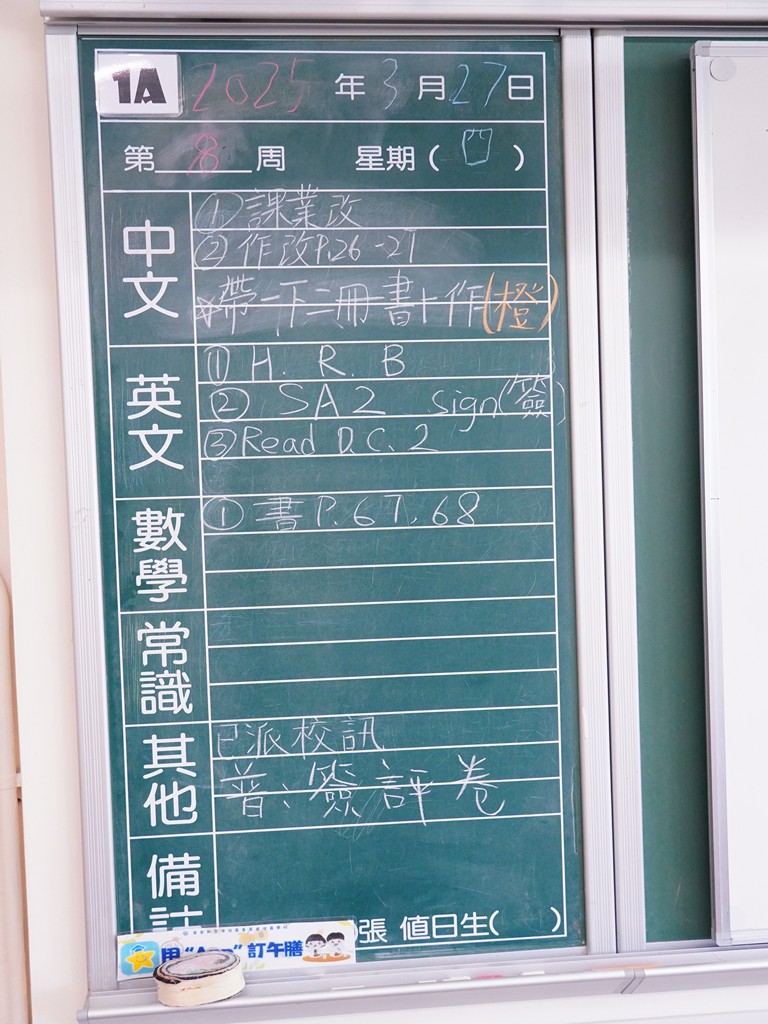 1A 2025年3月27日
第8周 星期(四)
中文
①課業改
②作改P.26-27
☆帶一下二冊書+作(橙)
英文
① H. R. B
② SA2 sign(簽)
③ Read D.C. 2
數學
① 書P.67,68
常識
其他
已派校訊
普、簽評卷
備註
張 值日生( )
用 "App" 訂午膳